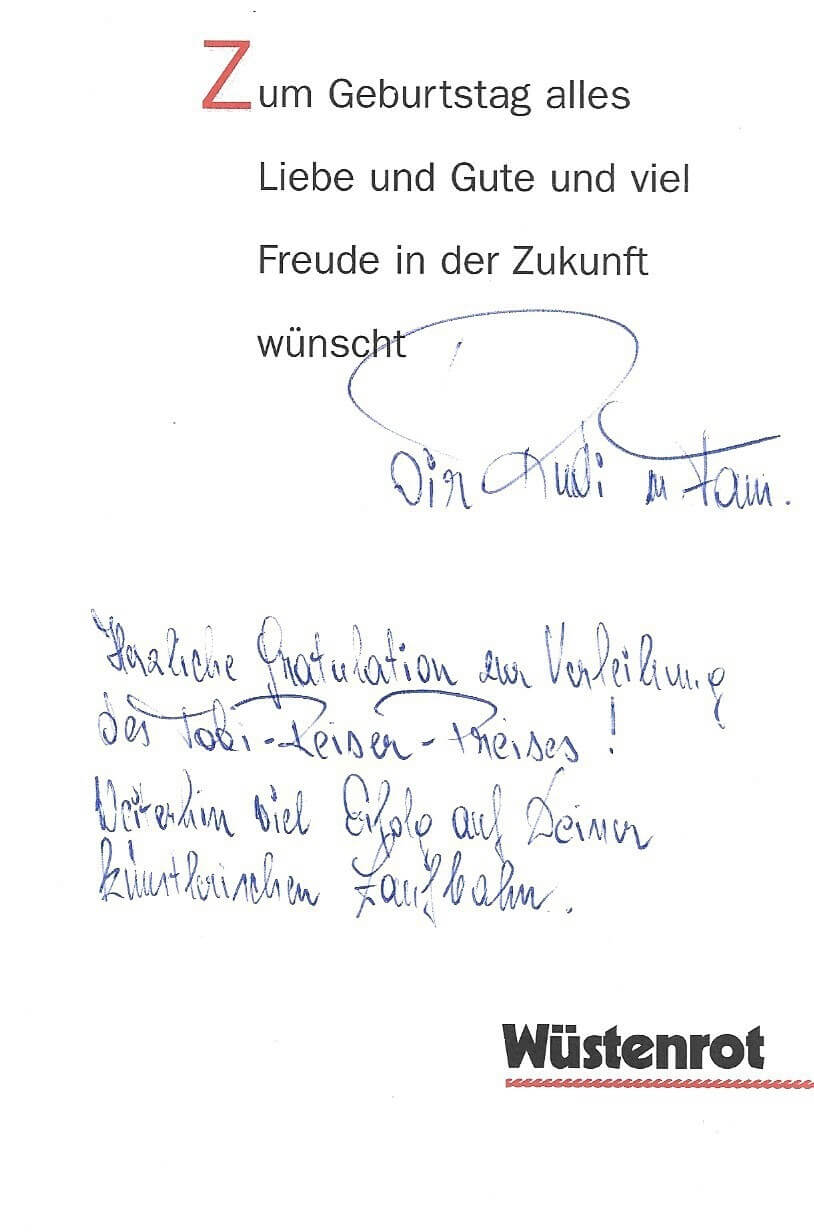 Zum Geburtstag alles
Liebe und Gute und viel
Freude in der Zukunft
wünscht
Dir Rudi u Fam.
Herzliche Gratulation zur Verleihung
des Tobi-Reiser-Preises!
Weiterhin viel Erfolg auf Deiner
künstlerischen Laufbahn.
Wüstenrot